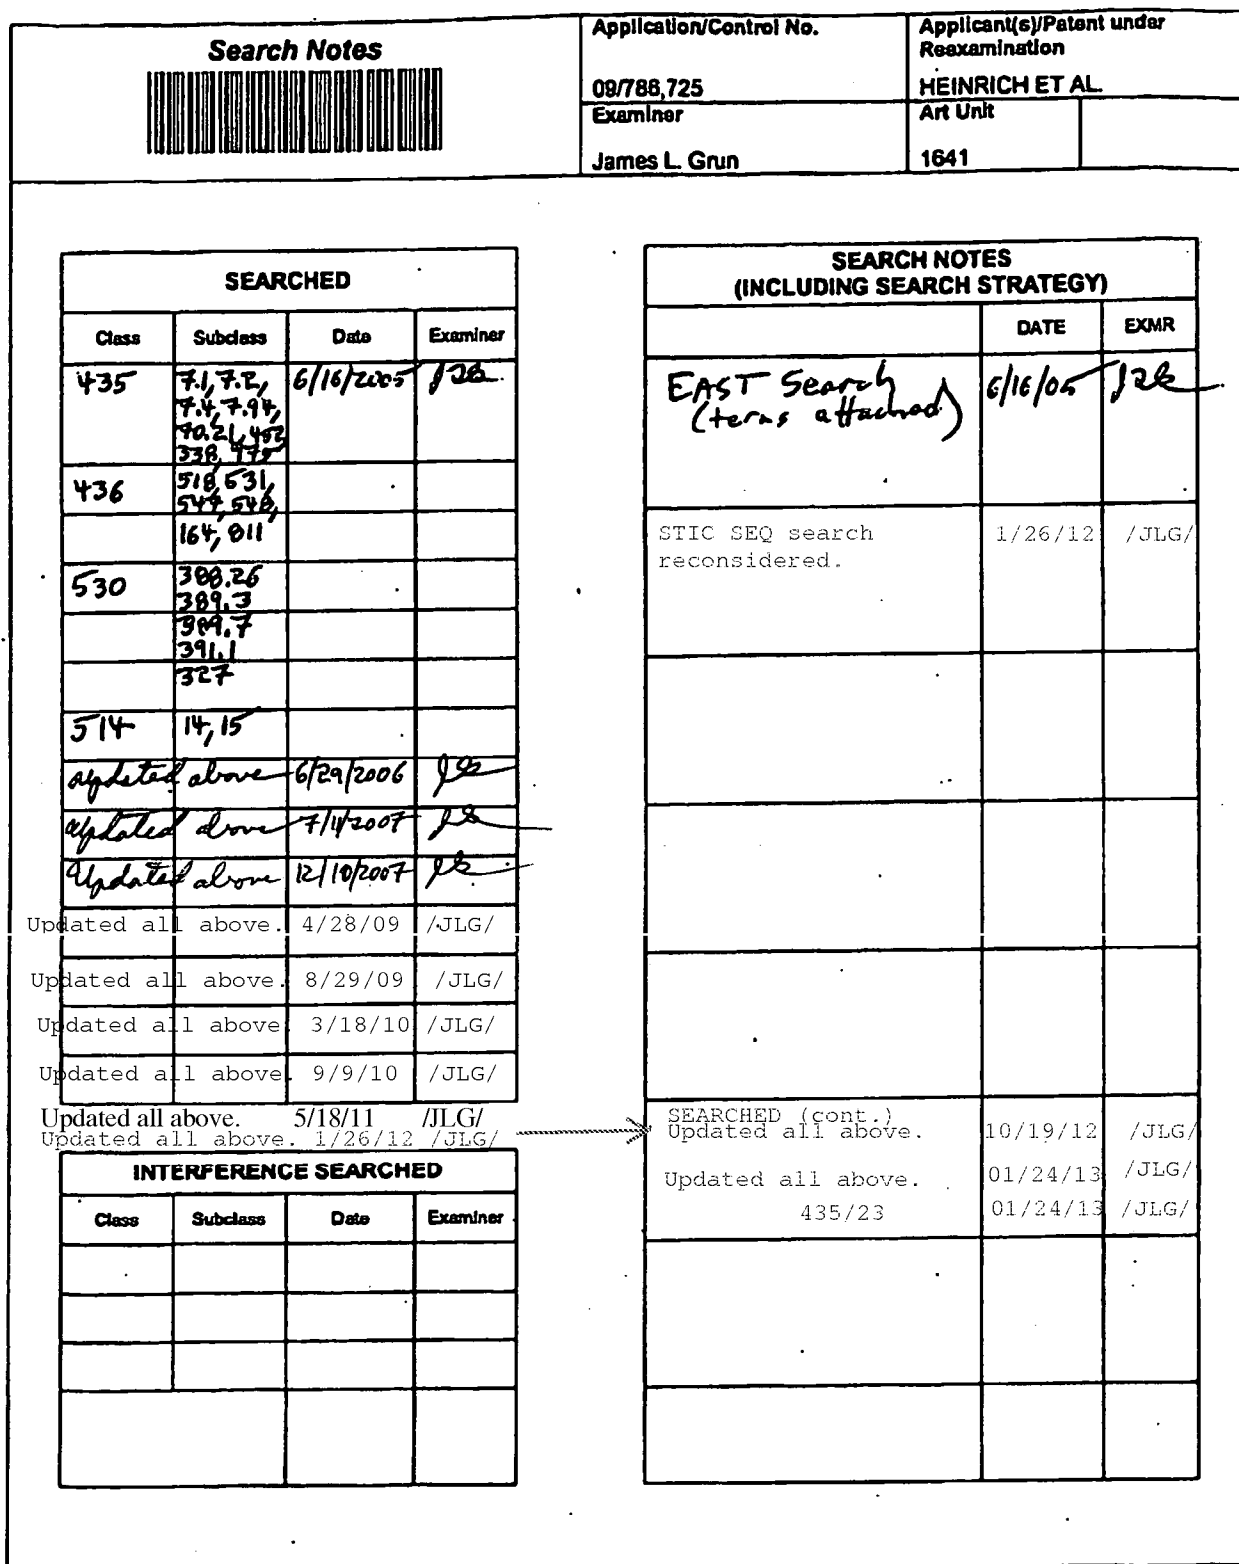 Search Notes
Application/Control No.
09/788,725
Applicant(s)/Patent under
Reexamination
HEINRICH ET AL.
Examiner
James L. Grun
Art Unit
1641
SEARCHED
Class Subclass Date Examiner
435 7.1, 7.2, 6/16/2005
7.4, 7.94,
70.21, 452
338, 975
436 518, 531,
547, 548,
164, 811
530 388.26
389.3
389.7
391.1
327
514 14, 15
updated above 6/29/2006
updated above 7/11/2007
Updated above 12/10/2007
Updated all above. 4/28/09 /JLG/
Updated all above. 8/29/09 /JLG/
Updated all above. 3/18/10 /JLG/
Updated all above. 9/9/10 /JLG/
Updated all above. 5/18/11 /JLG/
Updated all above. 1/26/12 /JLG/
INTERFERENCE SEARCHED
Class Subclass Date Examiner
SEARCH NOTES
(INCLUDING SEARCH STRATEGY)
DATE EXMR
EAST Search 6/16/05
(terms attached)
STIC SEQ search 1/26/12 /JLG/
reconsidered.
SEARCHED (cont.)
Updated all above. 10/19/12 /JLG/
Updated all above. 01/24/13 /JLG/
435/23 01/24/13 /JLG/